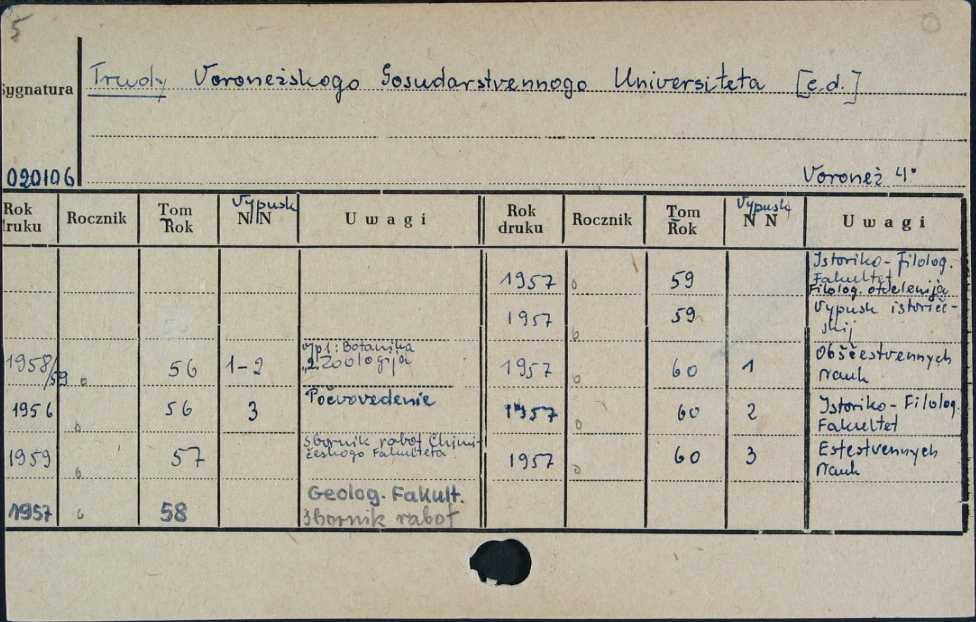 5
Sygnatura
Trudy Voronežskogo Gosudarstvennogo Universiteta [c.d.]
020106
Voronež 4°
Rok druku Rocznik Tom Rok Vypusk N N Uwagi Rok druku Rocznik Tom Rok Vypusk N N Uwagi
1957 59 Istoriko-Filolog. Fakultet
Filolog. otdelenija
1957 59 Vypusk istorič-
skij
1958/59 56 1-2 vyp 1: Botanika
„2 Zoologija
1957 60 1 Obščestvennych
nauk
1956 56 3 Počvovedenie
1957 60 2 Istoriko-Filolog.
Fakultet
1959 57 Sbornik rabot Chimi-
českogo Fakulteta
1957 60 3 Estestvennych
nauk
1957 58 Geolog. Fakult.
Sbornik rabot